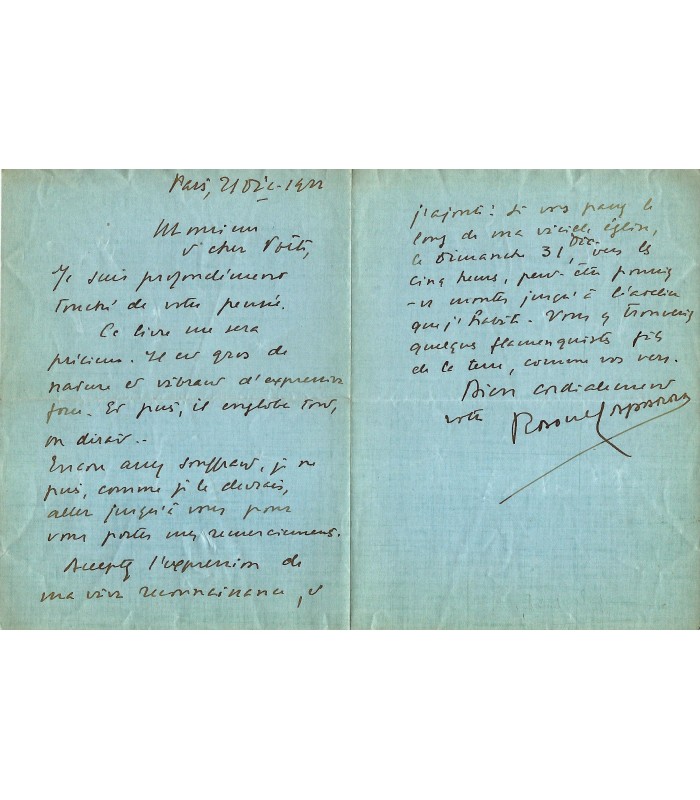 Paris, 21 Déc. 1922
Monsieur
& cher Poète,
Je suis profondément
touché de votre pensée.
Ce livre me sera
précieux. Il est gros de
nature et vibrant d'expression
forte. Et puis, il englobe tout,
on dirait..
Encore assez souffrant, je ne
puis, comme je le devrais,
aller jusqu'à vous pour
vous porter mes remerciements.
Acceptez l'expression de
ma vive reconnaissance, &
j'ajoute: si vous passez le
long de ma vieille église,
le Dimanche 31, Déc. vers les
cinq heures, peut-être pourriez
-vs monter jusqu'à l'atelier
que j'habite. Vous y trouveriez
quelques flamenquistes fils
de la terre, comme vos vers.
Bien cordialement
votre Raoul Laparra